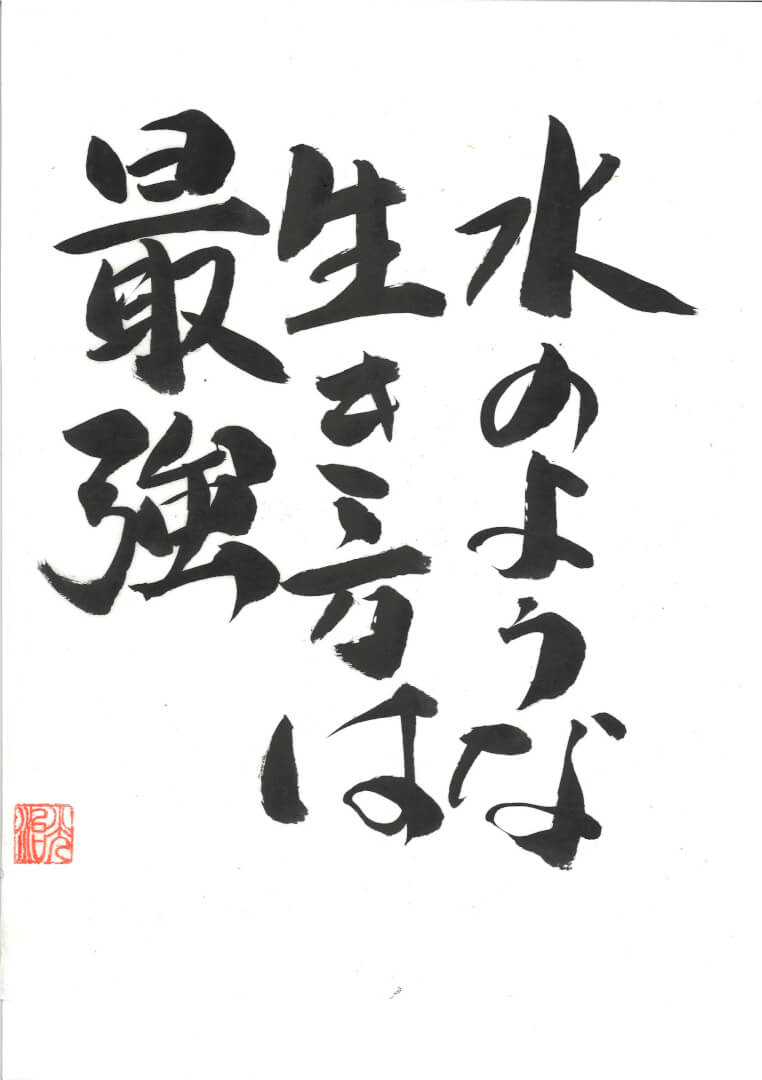 水のような
生き方は
最強